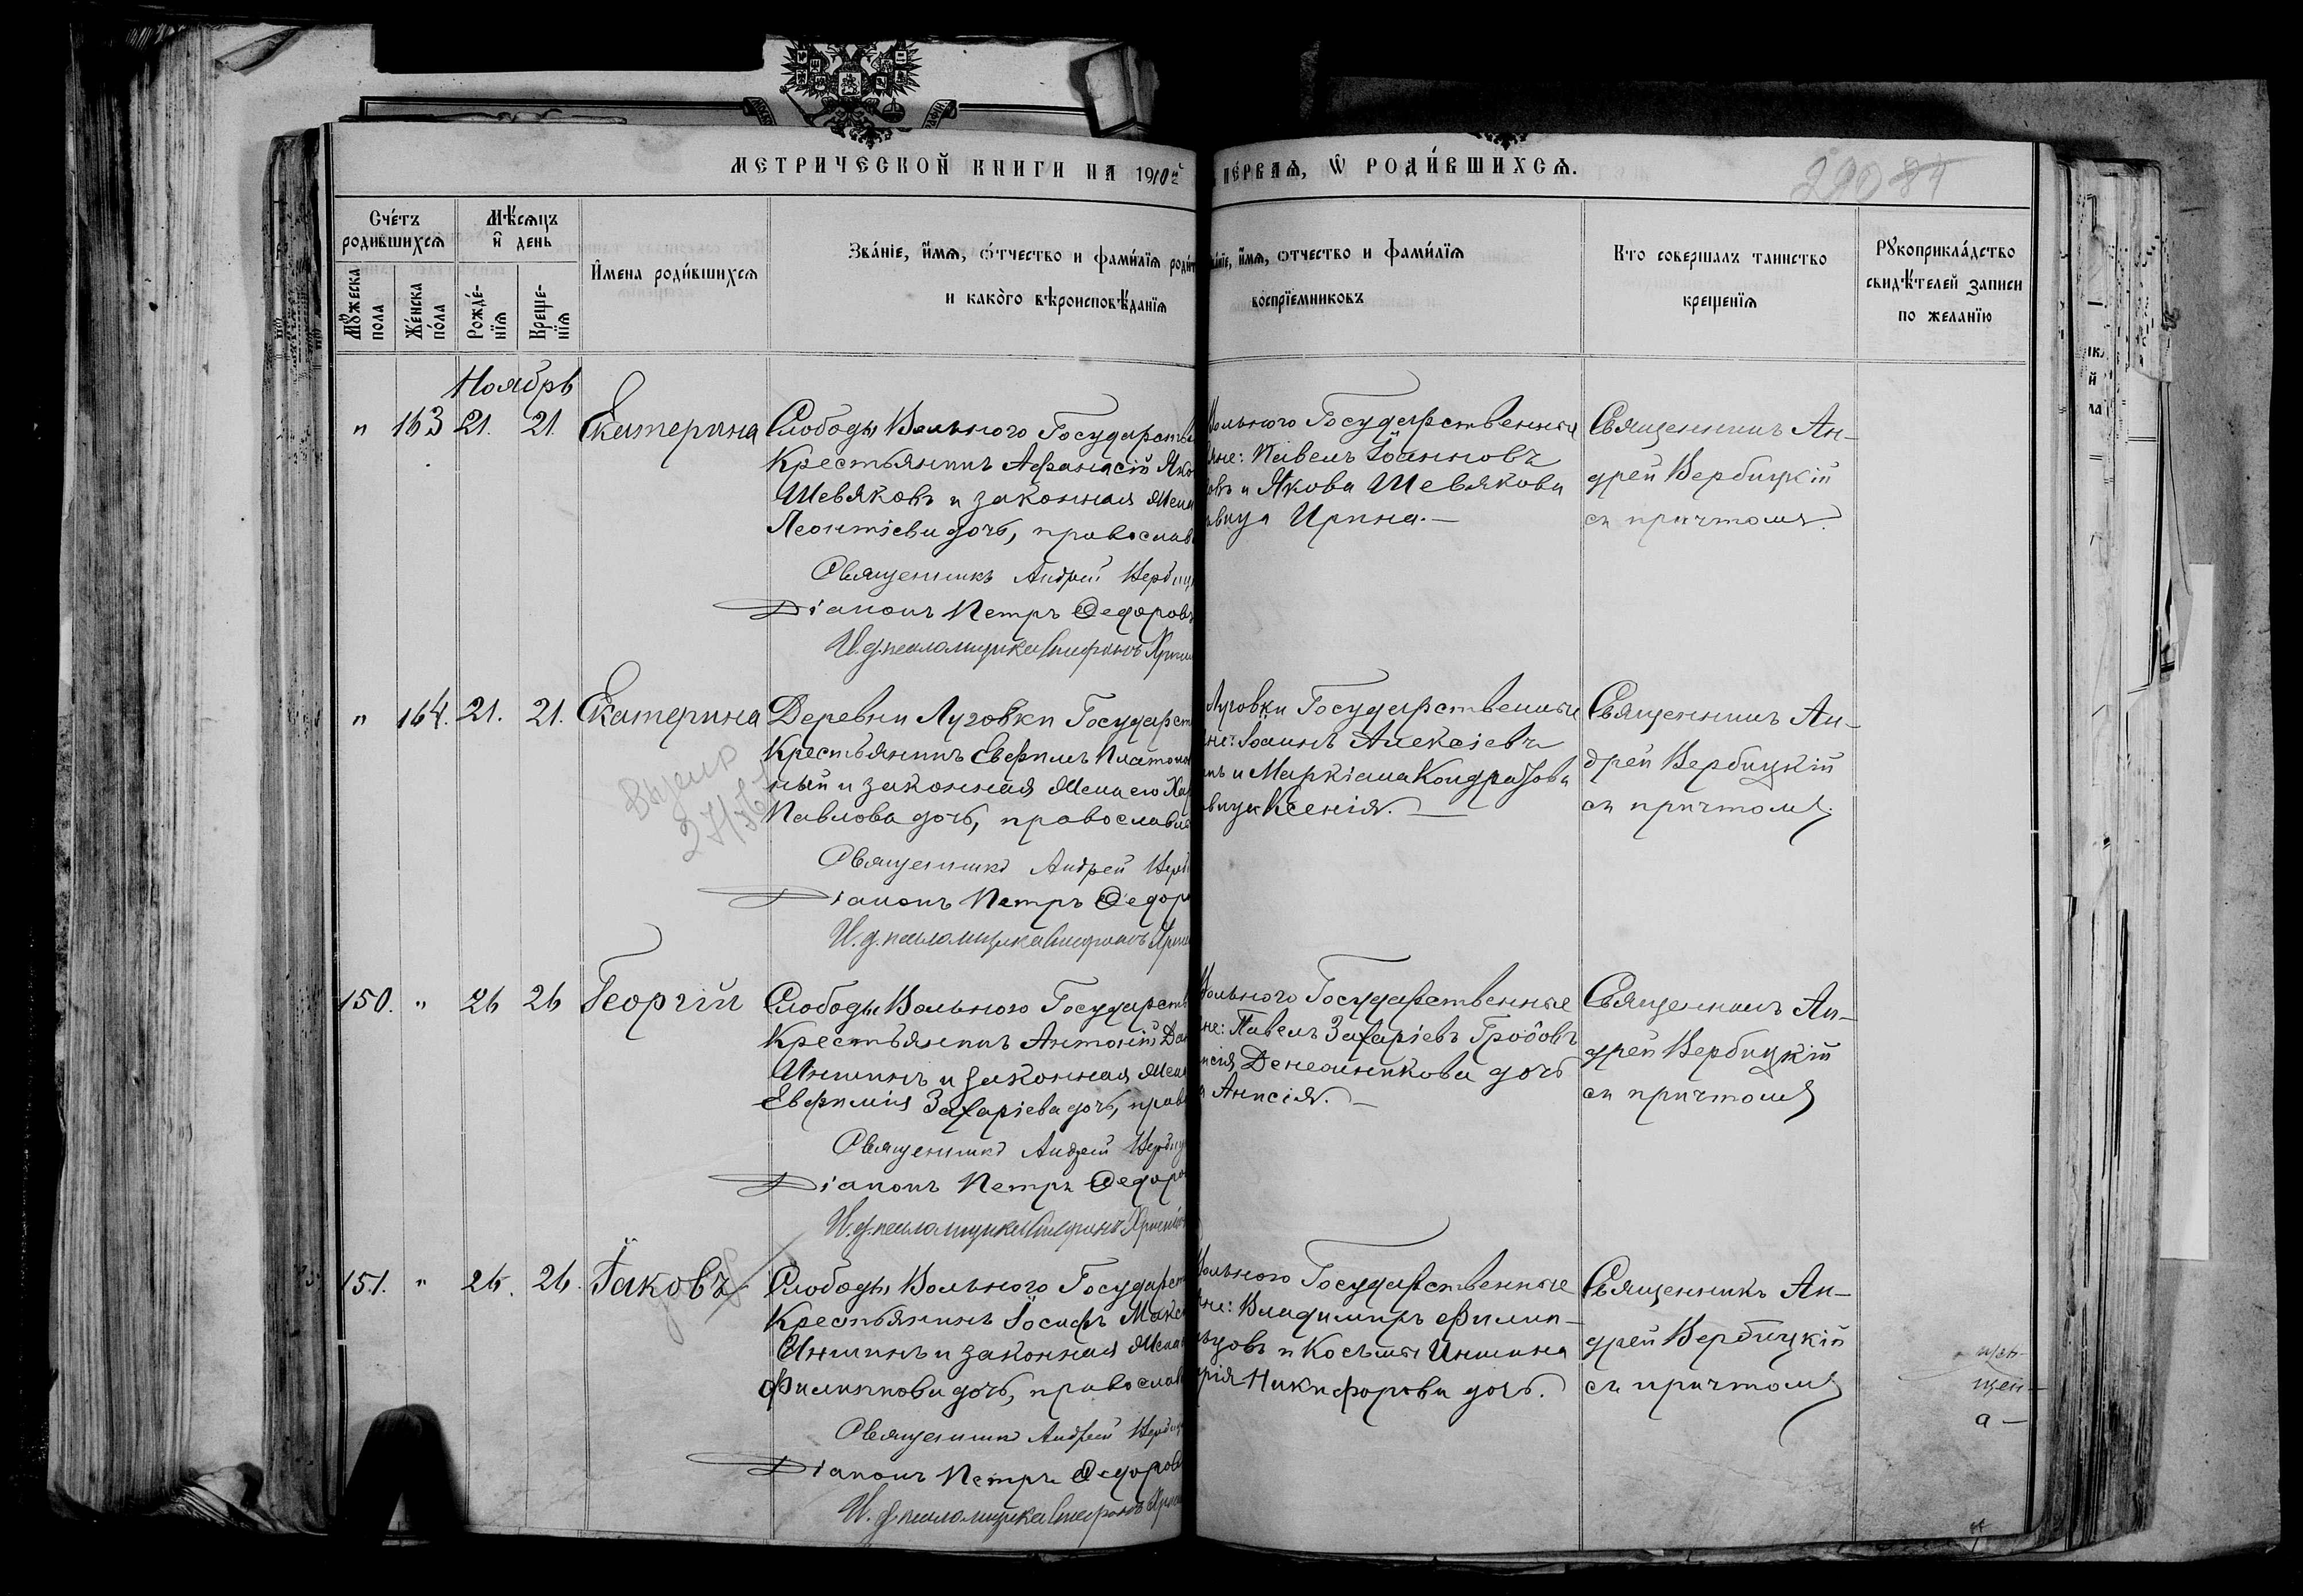 МЕТРИЧЕСКОЙ КНИГИ НА 1910й
ПЕ́РВАѦ, Ѡ РОДИ́ВШИХСѦ.
290 87
Сче́тъ родившихсѧ
Мѣ́сѧцъ и҆ день
И҆мена роди́вшихсѧ
Зва́нїе, и҆́мѧ, ѻ҆́тчество и фами́лїѧ роди
и како́го вѣроисповѣ́данїѧ
и҆́мѧ, ѻтчество и фами́лїѧ
воспрїемниковъ
Кто совершалъ таинство
крещенїѧ
Рꙋкоприкла́дство
свидѣ́телей записи
по желанїю
Мꙋ́жеска пола
Же́нска по́ла
Рожде́-нїѧ
Креще-нїѧ
Ноябрь
" 163 21. 21. Екатерина
Слободы Вольного Государстве
Крестьянинъ Афанасій Яко
Шевяковъ и законная жена
Леонтіева дочь, православ
Священникъ Андрей Вербиц
Діаконъ Петръ Федоровъ
И. д. псаломщика
Вольного Государственные
яне: Павелъ Іоанновъ
овъ и Якова Шевякова
вица Ирина. —
Священникъ Ан-
дрей Вербицкій
съ причтомъ.
" 164. 21. 21. Екатерина
Деревни Луговки Государст
Крестьянинъ Евфимъ Платоно
ный и законная жена его Ха
Павлова дочь, православн
Священникъ Андрей Верб
Діаконъ Петръ Федоро
И. д. псаломщика
Луговки Государственные
не: Іоаннъ Алексіевъ
нъ и Маркіана Кондратова
вица Ксенія. —
Священникъ Ан-
дрей Вербицкій
съ причтомъ
150. " 26 26 Георгій
Слободы Вольного Государств
Крестьянинъ Антоній Дан
Иншинъ и законная жена
Евфимія Захаріева дочь, право
Священникъ Андрей Вербиц
Діаконъ Петръ Федоро
И. д. псаломщика
Вольного Государственные
не: Павелъ Захаріевъ Гробовъ
Денесникова дочь
Анисія. —
Священникъ Ан-
дрей Вербицкій
съ причтомъ
151. " 26. 26. Іаковъ
Слободы Вольного Государст
Крестьянинъ Іосифъ Макс
Иншинъ и законная жена
Филиппова дочь, православ
Священникъ Андрей Вербиц
Діаконъ Петръ Федоров
И. д. псаломщика
Вольного Государственные
не: Владимиръ Филип-
цовъ и Косьмы Иншина
рія Никифорова дочь.
Священникъ Ан-
дрей Вербицкій
съ причтомъ
щен-
а-